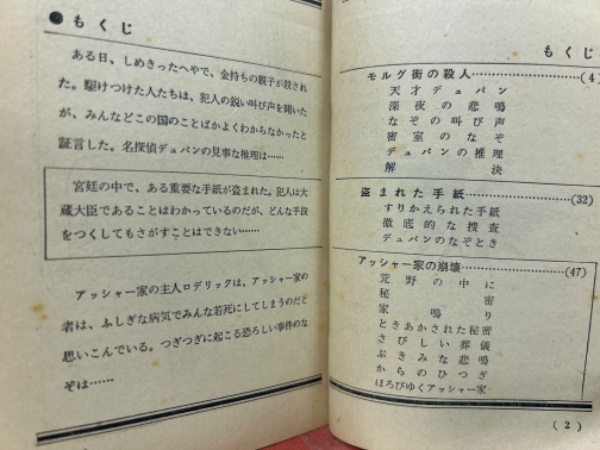 ●もくじ
ある日、しめきったへやで、金持ちの親子が殺され
た。駆けつけた人たちは、犯人の鋭い叫び声を聞いた
が、みんなどこの国のことばかよくわからなかったと
証言した。名探偵デュパンの見事な推理は……
宮廷の中で、ある重要な手紙が盗まれた。犯人は大
蔵大臣であることはわかっているのだが、どんな手段
をつくしてもさがすことはできない……
アッシャー家の主人ロデリックは、アッシャー家の
者は、ふしぎな病気でみんな若死にしてしまうのだと
思いこんでいる。つぎつぎに起こる恐ろしい事件のな
ぞは……
もくじ
モルグ街の殺人……………………(4)
天才デュパン
深夜の悲鳴
なぞの叫び声
密室のなぞ
デュパンの推理
解決
盗まれた手紙……………………(32)
すりかえられた手紙
徹底的な捜査
デュパンのなぞとき
アッシャー家の崩壊……………………(47)
荒野の中に
秘密
家鳴り
ときあかされた秘密
さびしい葬儀
ぶきみな悲鳴
からのひつぎ
ほろびゆくアッシャー家
(2)